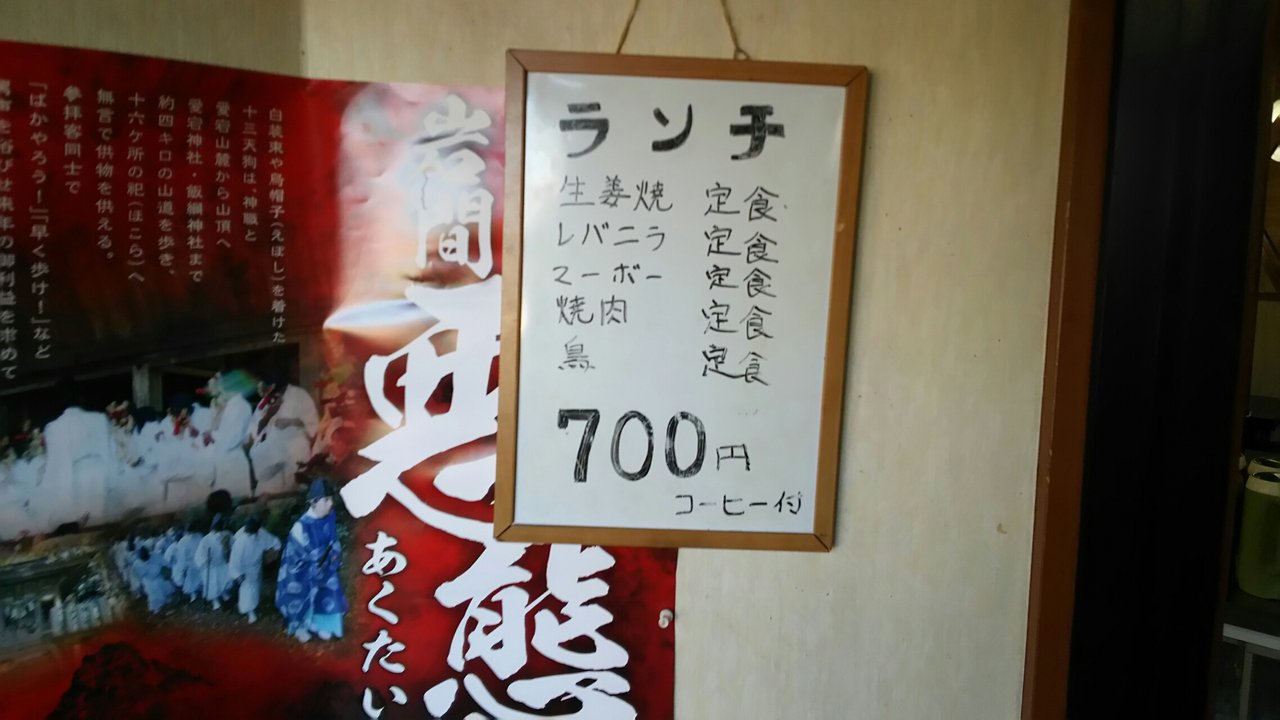 ランチ
生姜焼 定食
レバニラ 定食
マーボー 定食
焼肉 定食
鳥 定食
700円
コーヒー付
岩間
悪態
あくたい
白装束や烏帽子(えぼし)を着けた
十三天狗は、神職と
愛宕山麓から山頂へ
愛宕神社・飯綱神社まで
約四キロの山道を歩き、
十六ケ所の祀(ほこら)へ
無言で供物を供える。
参拝客同士で
「ばかやろう!」「早く歩け!」など
を浴びせ来年の御利益を求めて